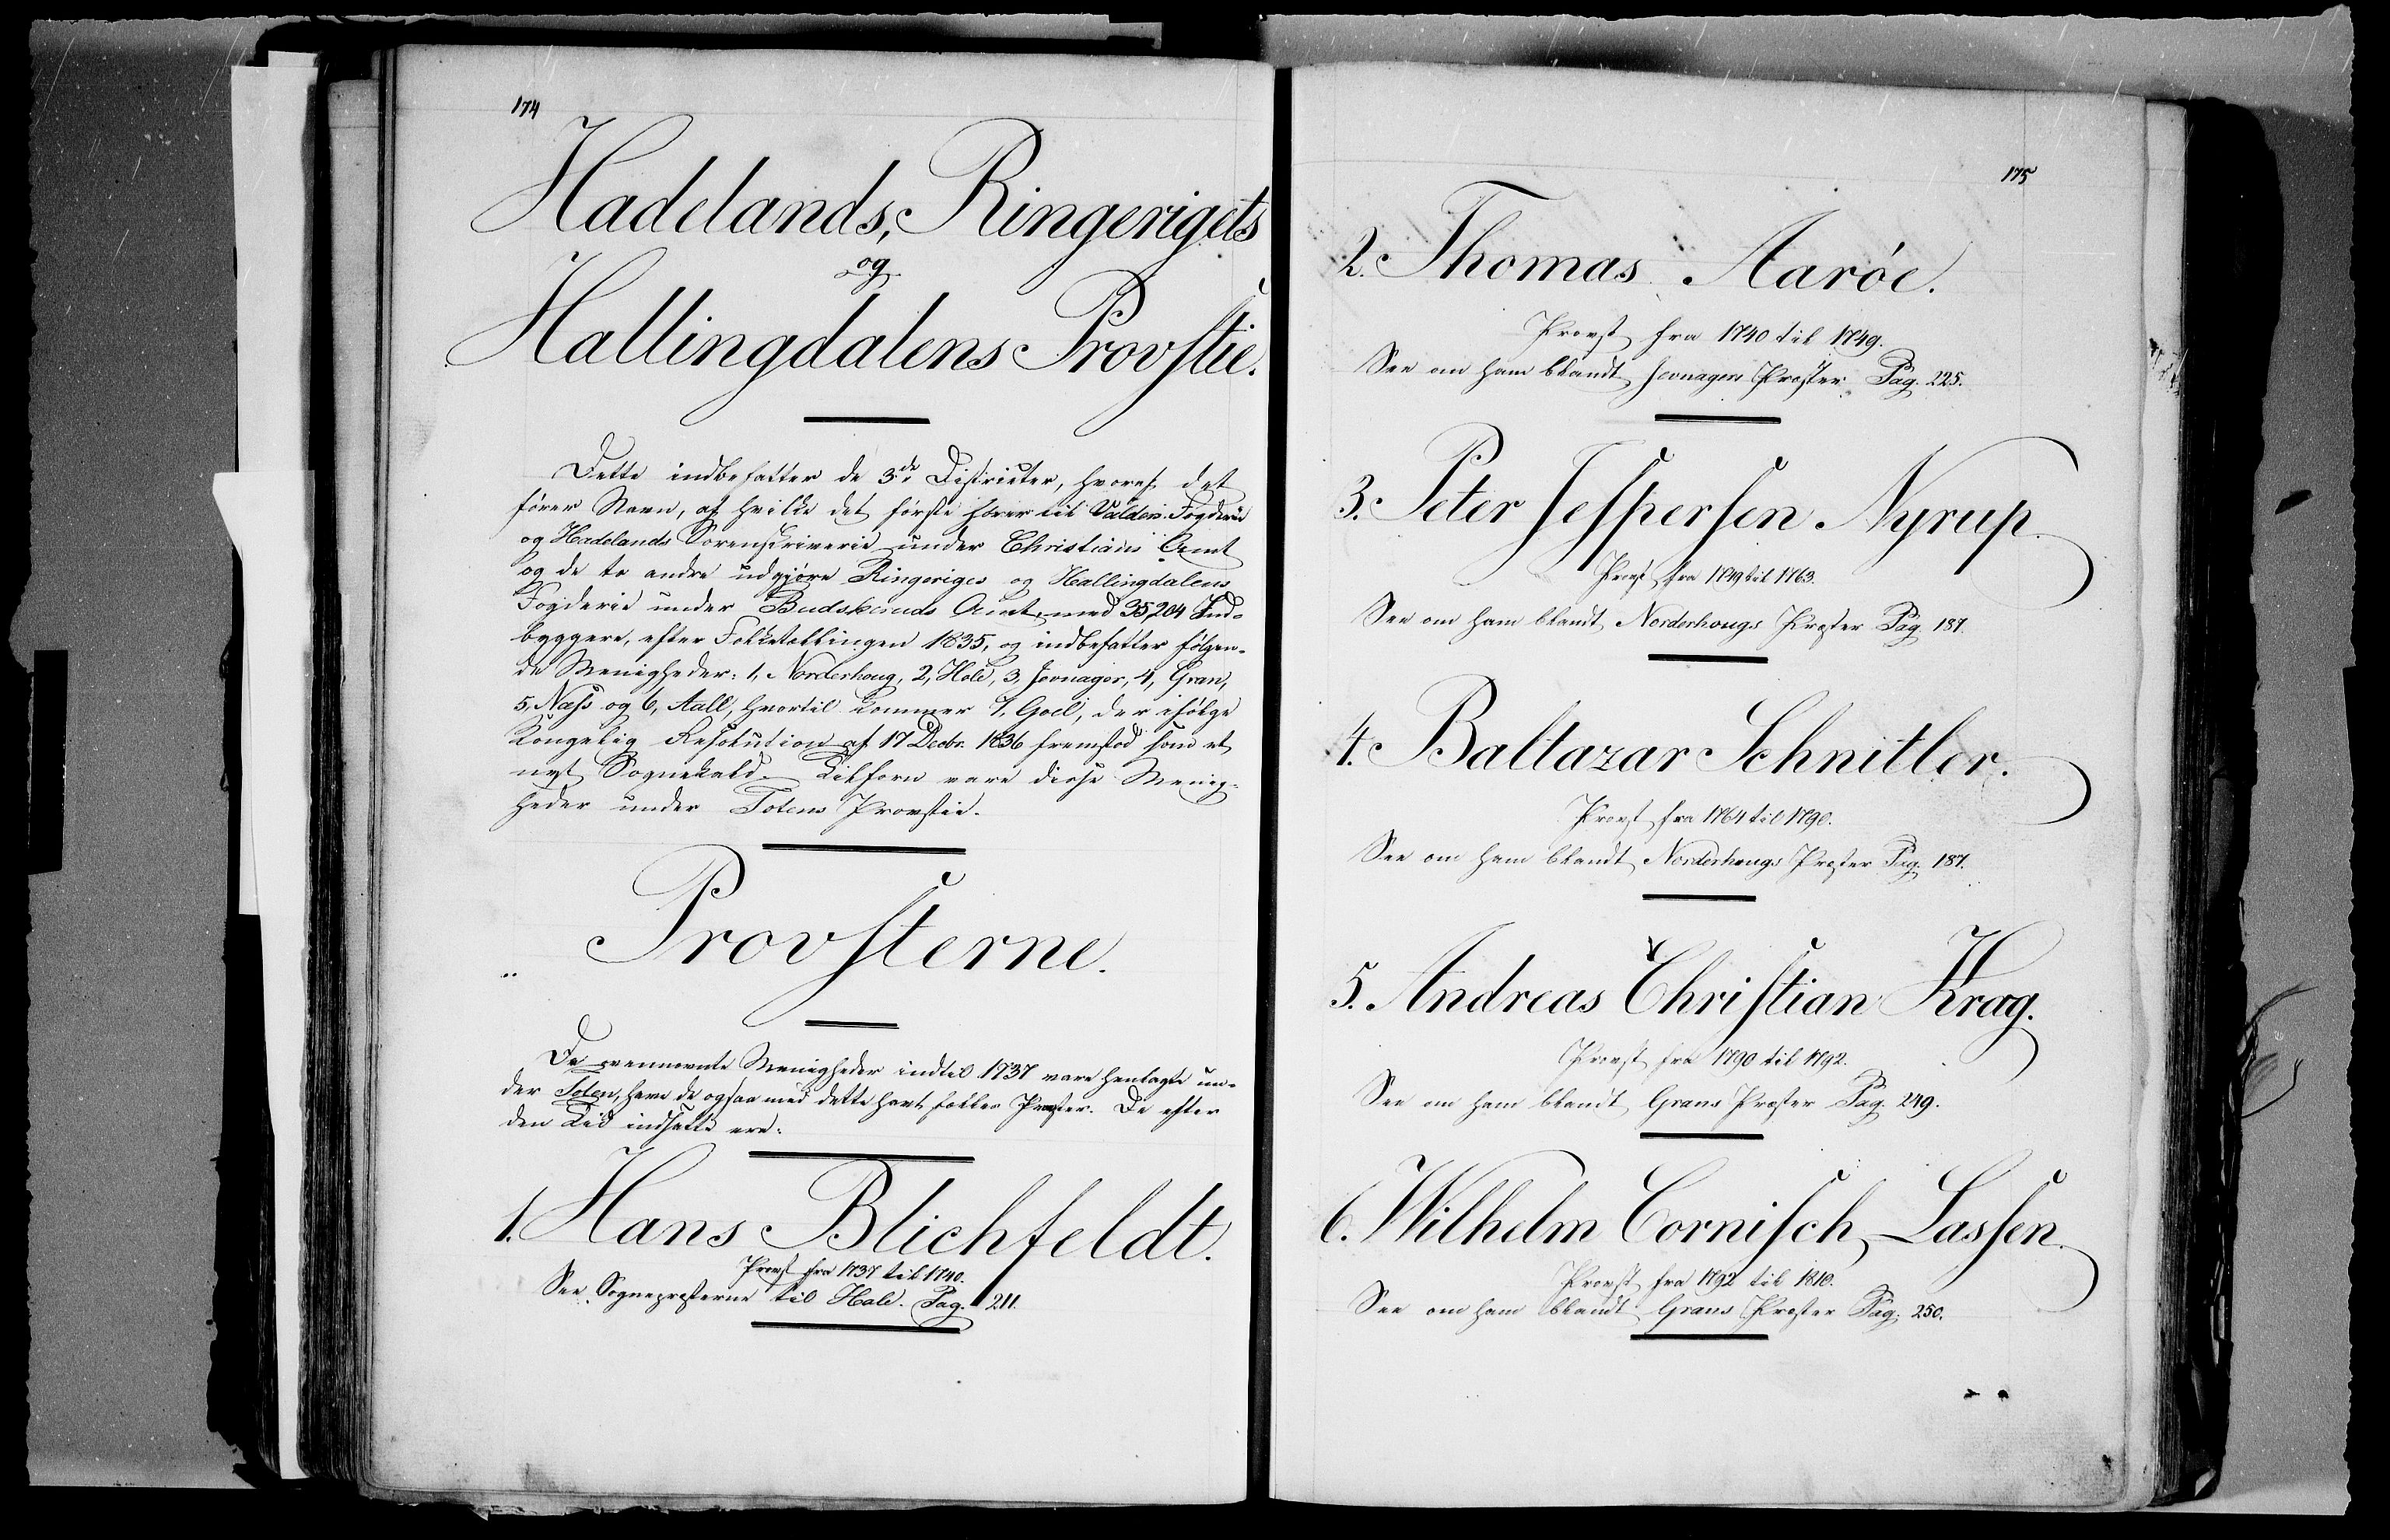 174
Hadelands, Ringerigets
og
Hallingdalens Provstie.
Dette indbefatter de 3de Districter, hvoraf det
fører Navn, af hvilke det første hører til Valders Fogderie
og Hadelands Sorenskriverie under Christians Amt
og de to andre udgjøre Ringeriges og Hallingdalens
Fogderie under Budskeruds Amt, med 35,204 Ind-
byggere, efter Folketællingen 1835, og indbefatter følgen-
de Menigheder: 1, Norderhoug, 2, Hole, 3, Jevnager, 4, Gran,
5, Næss og 6, Aall, hvortil kommer 7, Goel, der ifølge
Kongelig Resolution af 17 Decbr. 1836 fremstod som et
nyt Sognekald. Tilforn vare disse Menig-
heder under Totens Provstie.
Provsterne.
Da ovennævnte Menigheder indtil 1737 vare henlagte un-
der Toten, have de ogsaa med dette havt fælles Provster. De efter
den Tid indsatte ere:
1. Hans Blichfeldt.
Provst fra 1737 til 1740.
See Sognepræsterne til Hole. Pag. 211.
175
2. Thomas Aarøe.
Provst fra 1740 til 1749.
See om ham blandt Jevnagers Præster Pag. 225.
3. Peter Jespersen Nyrup.
Provst fra 1749 til 1763.
See om ham blandt Norderhougs Præster Pag. 187.
4. Baltazar Schnitler.
Provst fra 1764 til 1790.
See om ham blandt Norderhougs Præster Pag. 187.
5. Andreas Christian Krag.
Provst fra 1790 til 1792.
See om ham blandt Grans Præster Pag. 249.
6. Wilhelm Cornisch Lassen.
Provst fra 1792 til 1810.
See om ham blandt Grans Præster Pag. 250.